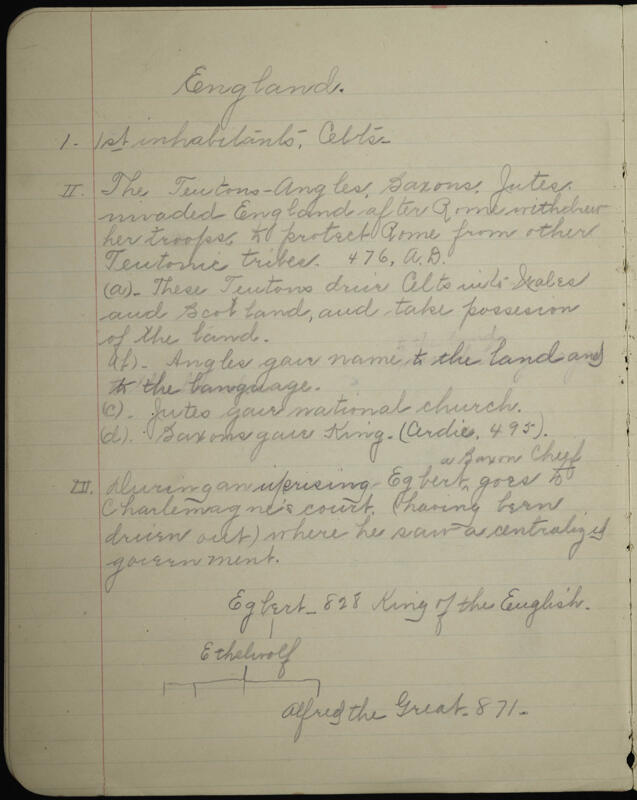 England.
I. 1st inhabitants, Celts-
II. The Teutons-Angles, Saxons, Jutes.
invaded England after Rome withdrew
her troops, to protect Rome from other
Teutonic tribes. 476, A.D.
(a)- These Teutons drive Celts into Wales
and Scotland, and take possesion
of the land.
(b)- Angles gave name to the land and
to the language.
(c)- Jutes gave national church.
(d). Saxons gave King. (Cerdic, 495).
a Saxon Chief
III. During an uprising Egbert, goes to
Charlemagne's court, (having been
driven out) where he saw a centralized
government.
Egbert - 828 King of the English.
Ethelwolf
Alfred the Great - 871-